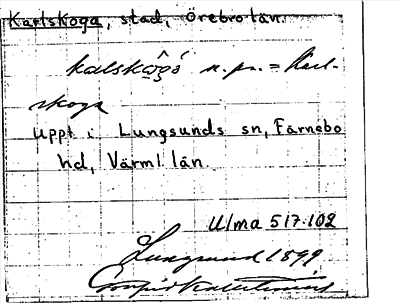 Karlskoga, stad, Örebro län.
kalskôgó n. pr. = Karl-
skoga
Uppt i Lungsunds sn, Färnebo
hd, Värml län.
Ulma 517:102
Lungsund 1899